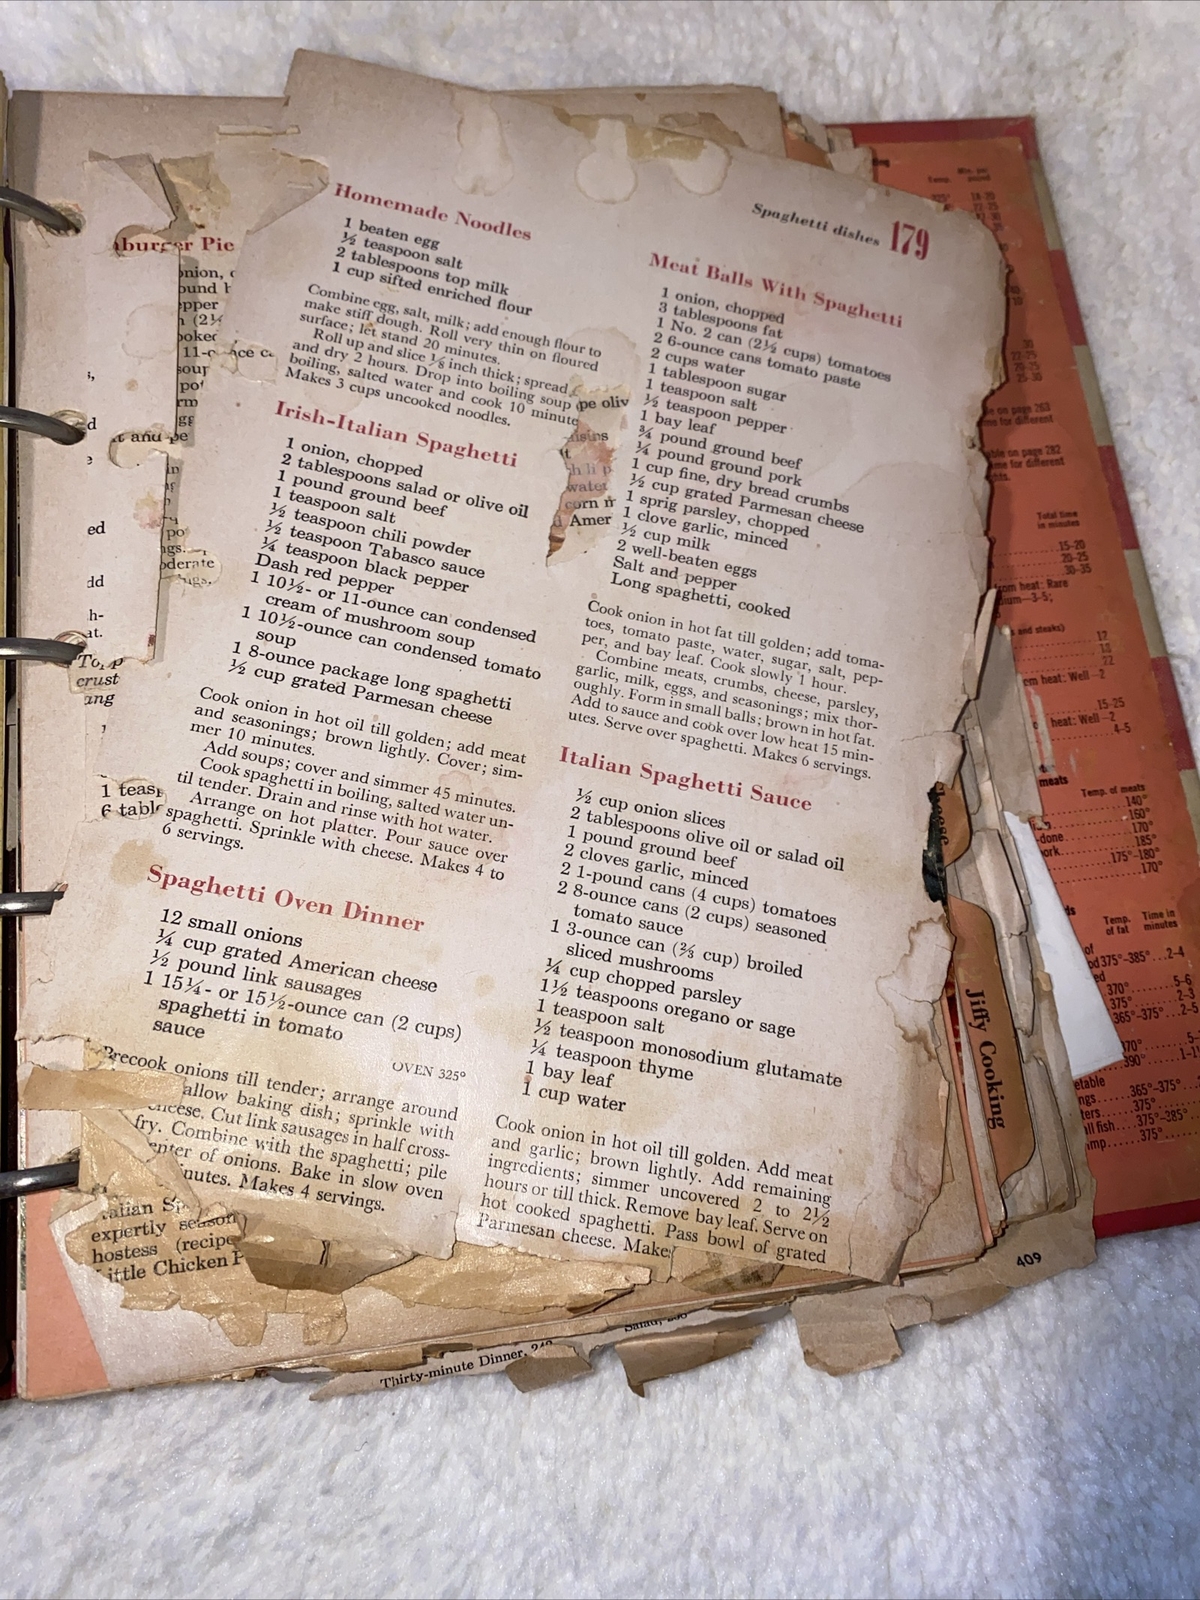 Spaghetti dishes 179
Homemade Noodles
1 beaten egg
½ teaspoon salt
2 tablespoons top milk
1 cup sifted enriched flour
Combine egg, salt, milk; add enough flour to
make stiff dough. Roll very thin on floured
surface; let stand 20 minutes.
Roll up and slice ⅛ inch thick; spread
and dry 2 hours. Drop into boiling soup
boiling, salted water and cook 10 minute
Makes 3 cups uncooked noodles.
Irish-Italian Spaghetti
1 onion, chopped
2 tablespoons salad or olive oil
1 pound ground beef
1 teaspoon salt
½ teaspoon chili powder
½ teaspoon Tabasco sauce
¼ teaspoon black pepper
Dash red pepper
1 10½- or 11-ounce can condensed
cream of mushroom soup
1 10½-ounce can condensed tomato
soup
1 8-ounce package long spaghetti
½ cup grated Parmesan cheese
Cook onion in hot oil till golden; add meat
and seasonings; brown lightly. Cover; sim-
mer 10 minutes.
Add soups; cover and simmer 45 minutes.
Cook spaghetti in boiling, salted water un-
til tender. Drain and rinse with hot water.
Arrange on hot platter. Pour sauce over
spaghetti. Sprinkle with cheese. Makes 4 to
6 servings.
Spaghetti Oven Dinner
12 small onions
¼ cup grated American cheese
½ pound link sausages
1 15¼- or 15½-ounce can (2 cups)
spaghetti in tomato
sauce
OVEN 325°
Precook onions till tender; arrange around
allow baking dish; sprinkle with
cheese. Cut link sausages in half cross-
fry. Combine with the spaghetti; pile
enter of onions. Bake in slow oven
nutes. Makes 4 servings.
Meat Balls With Spaghetti
1 onion, chopped
3 tablespoons fat
1 No. 2 can (2½ cups) tomatoes
2 6-ounce cans tomato paste
2 cups water
1 tablespoon sugar
1 teaspoon salt
½ teaspoon pepper
1 bay leaf
¾ pound ground beef
¼ pound ground pork
1 cup fine, dry bread crumbs
½ cup grated Parmesan cheese
1 sprig parsley, chopped
1 clove garlic, minced
½ cup milk
2 well-beaten eggs
Salt and pepper
Long spaghetti, cooked
Cook onion in hot fat till golden; add toma-
toes, tomato paste, water, sugar, salt, pep-
per, and bay leaf. Cook slowly 1 hour.
Combine meats, crumbs, cheese, parsley,
garlic, milk, eggs, and seasonings; mix thor-
oughly. Form in small balls; brown in hot fat.
Add to sauce and cook over low heat 15 min-
utes. Serve over spaghetti. Makes 6 servings.
Italian Spaghetti Sauce
½ cup onion slices
2 tablespoons olive oil or salad oil
1 pound ground beef
2 cloves garlic, minced
2 1-pound cans (4 cups) tomatoes
2 8-ounce cans (2 cups) seasoned
tomato sauce
1 3-ounce can (⅔ cup) broiled
sliced mushrooms
¼ cup chopped parsley
1½ teaspoons oregano or sage
1 teaspoon salt
½ teaspoon monosodium glutamate
¼ teaspoon thyme
1 bay leaf
1 cup water
Cook onion in hot oil till golden. Add meat
and garlic; brown lightly. Add remaining
ingredients; simmer uncovered 2 to 2½
hours or till thick. Remove bay leaf. Serve on
hot cooked spaghetti. Pass bowl of grated
Parmesan cheese. Make
burger Pie
onion, c
pepper
soup
11-ounce ca
and pe
oderate
crust
1 teasp
6 table
pe oliv
water
corn m
Amer
expertly season
hostess (recipe
Little Chicken P
Thirty-minute Dinner,
Salad,
409
Cheese
Jiffy Cooking
Temp.
Min. per
pound
on page 263
me for different
ble on page 282
me for different
Total time
in minutes
15-20
20-25
30-35
rom heat: Rare
ium—3-5;
s and steaks)
12
18
22
em heat: Well -2
15-25
heat: Well -2
4-5
meats
Temp. of meats
140°
160°
-done 170°
ork 185°
175°-180°
170°
Temp.
of fat
Time in
minutes
375°-385° 2-4
370° 5-6
375° 2-3
365°-375° 2-5
370°
390°
etable
ngs 365°-375°
ters 375°
ll fish 375°-385°
mp 375°